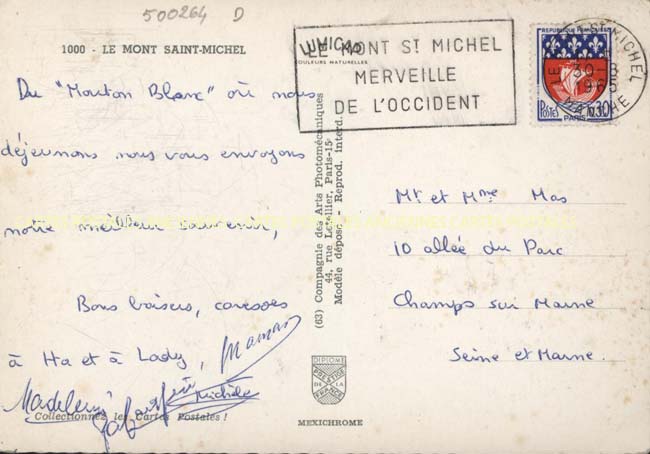 500264 D
1000 - LE MONT SAINT-MICHEL
LUMICAP
COULEURS NATURELLES
LE MONT St MICHEL
MERVEILLE
DE L'OCCIDENT
REPUBLIQUE FRANÇAISE
POSTES 0,30F
PARIS
LE MONT-ST-MICHEL
30-8
1965
MANCHE
Du "Mouton Blanc" où nous
déjeunons nous vous envoyons
notre meilleur souvenir,
Bons baisers, caresses
à Ha et à Lady, Maman
Madeleine
Michèle
Collectionnez les Cartes Postales !
(63) Compagnie des Arts Photomécaniques
44, rue Letellier, Paris-15e
Modèle déposé - Reprod. interd.
DIPLOME
PRESTIGE
DE LA
FRANCE
MEXICHROME
Mr et Mme Mas
10 allée du Parc
Champs sur Marne
Seine et Marne.